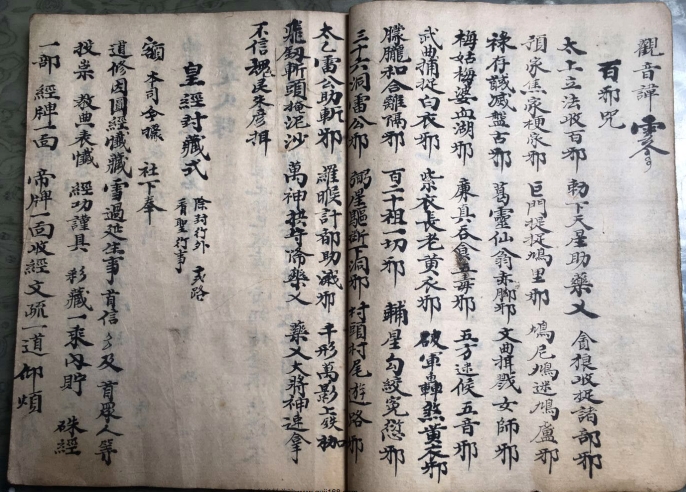 觀音諱
百邪咒
太上立法收百邪 勅下天星助藥乂 貪狼收捉諸部邪
項家焦家梗家邪 巨門捉捉鳩里邪 鳩尼鳩迷鳩廬邪
祿存誠滅盤古邪 葛靈仙翁赤腳邪 文曲 女師邪
梅姑梅婆血湖邪 廉真吞食 毒邪 五方迷候五音邪
武曲捕捉白衣邪 紫衣長老黄衣邪 破軍轟煞黄衣邪
朦朧和合離隔邪 百二十祖一切邪 輔星勾絞冤愆邪
三十六洞雷公邪 弼星驅斷下洞邪 村頭村尾遊路邪
太乙雷公助斬邪 羅睺計都助滅邪 千形萬影上
飛劍斬頭掩泥沙 萬神 降藥乂 藥乂大將神速拿
不信 民朱彦
皇經封藏式 除封行外 看聖行事
額 本司令牒 社下奉
道修因圓經懺藏雪過延生事 首信 及 首眾人等
投祟 教典表懺 經功謹具 彩藏一乘內貯 硃經
一部 經牌一面 帝牌一面收經文疏一道 仰煩